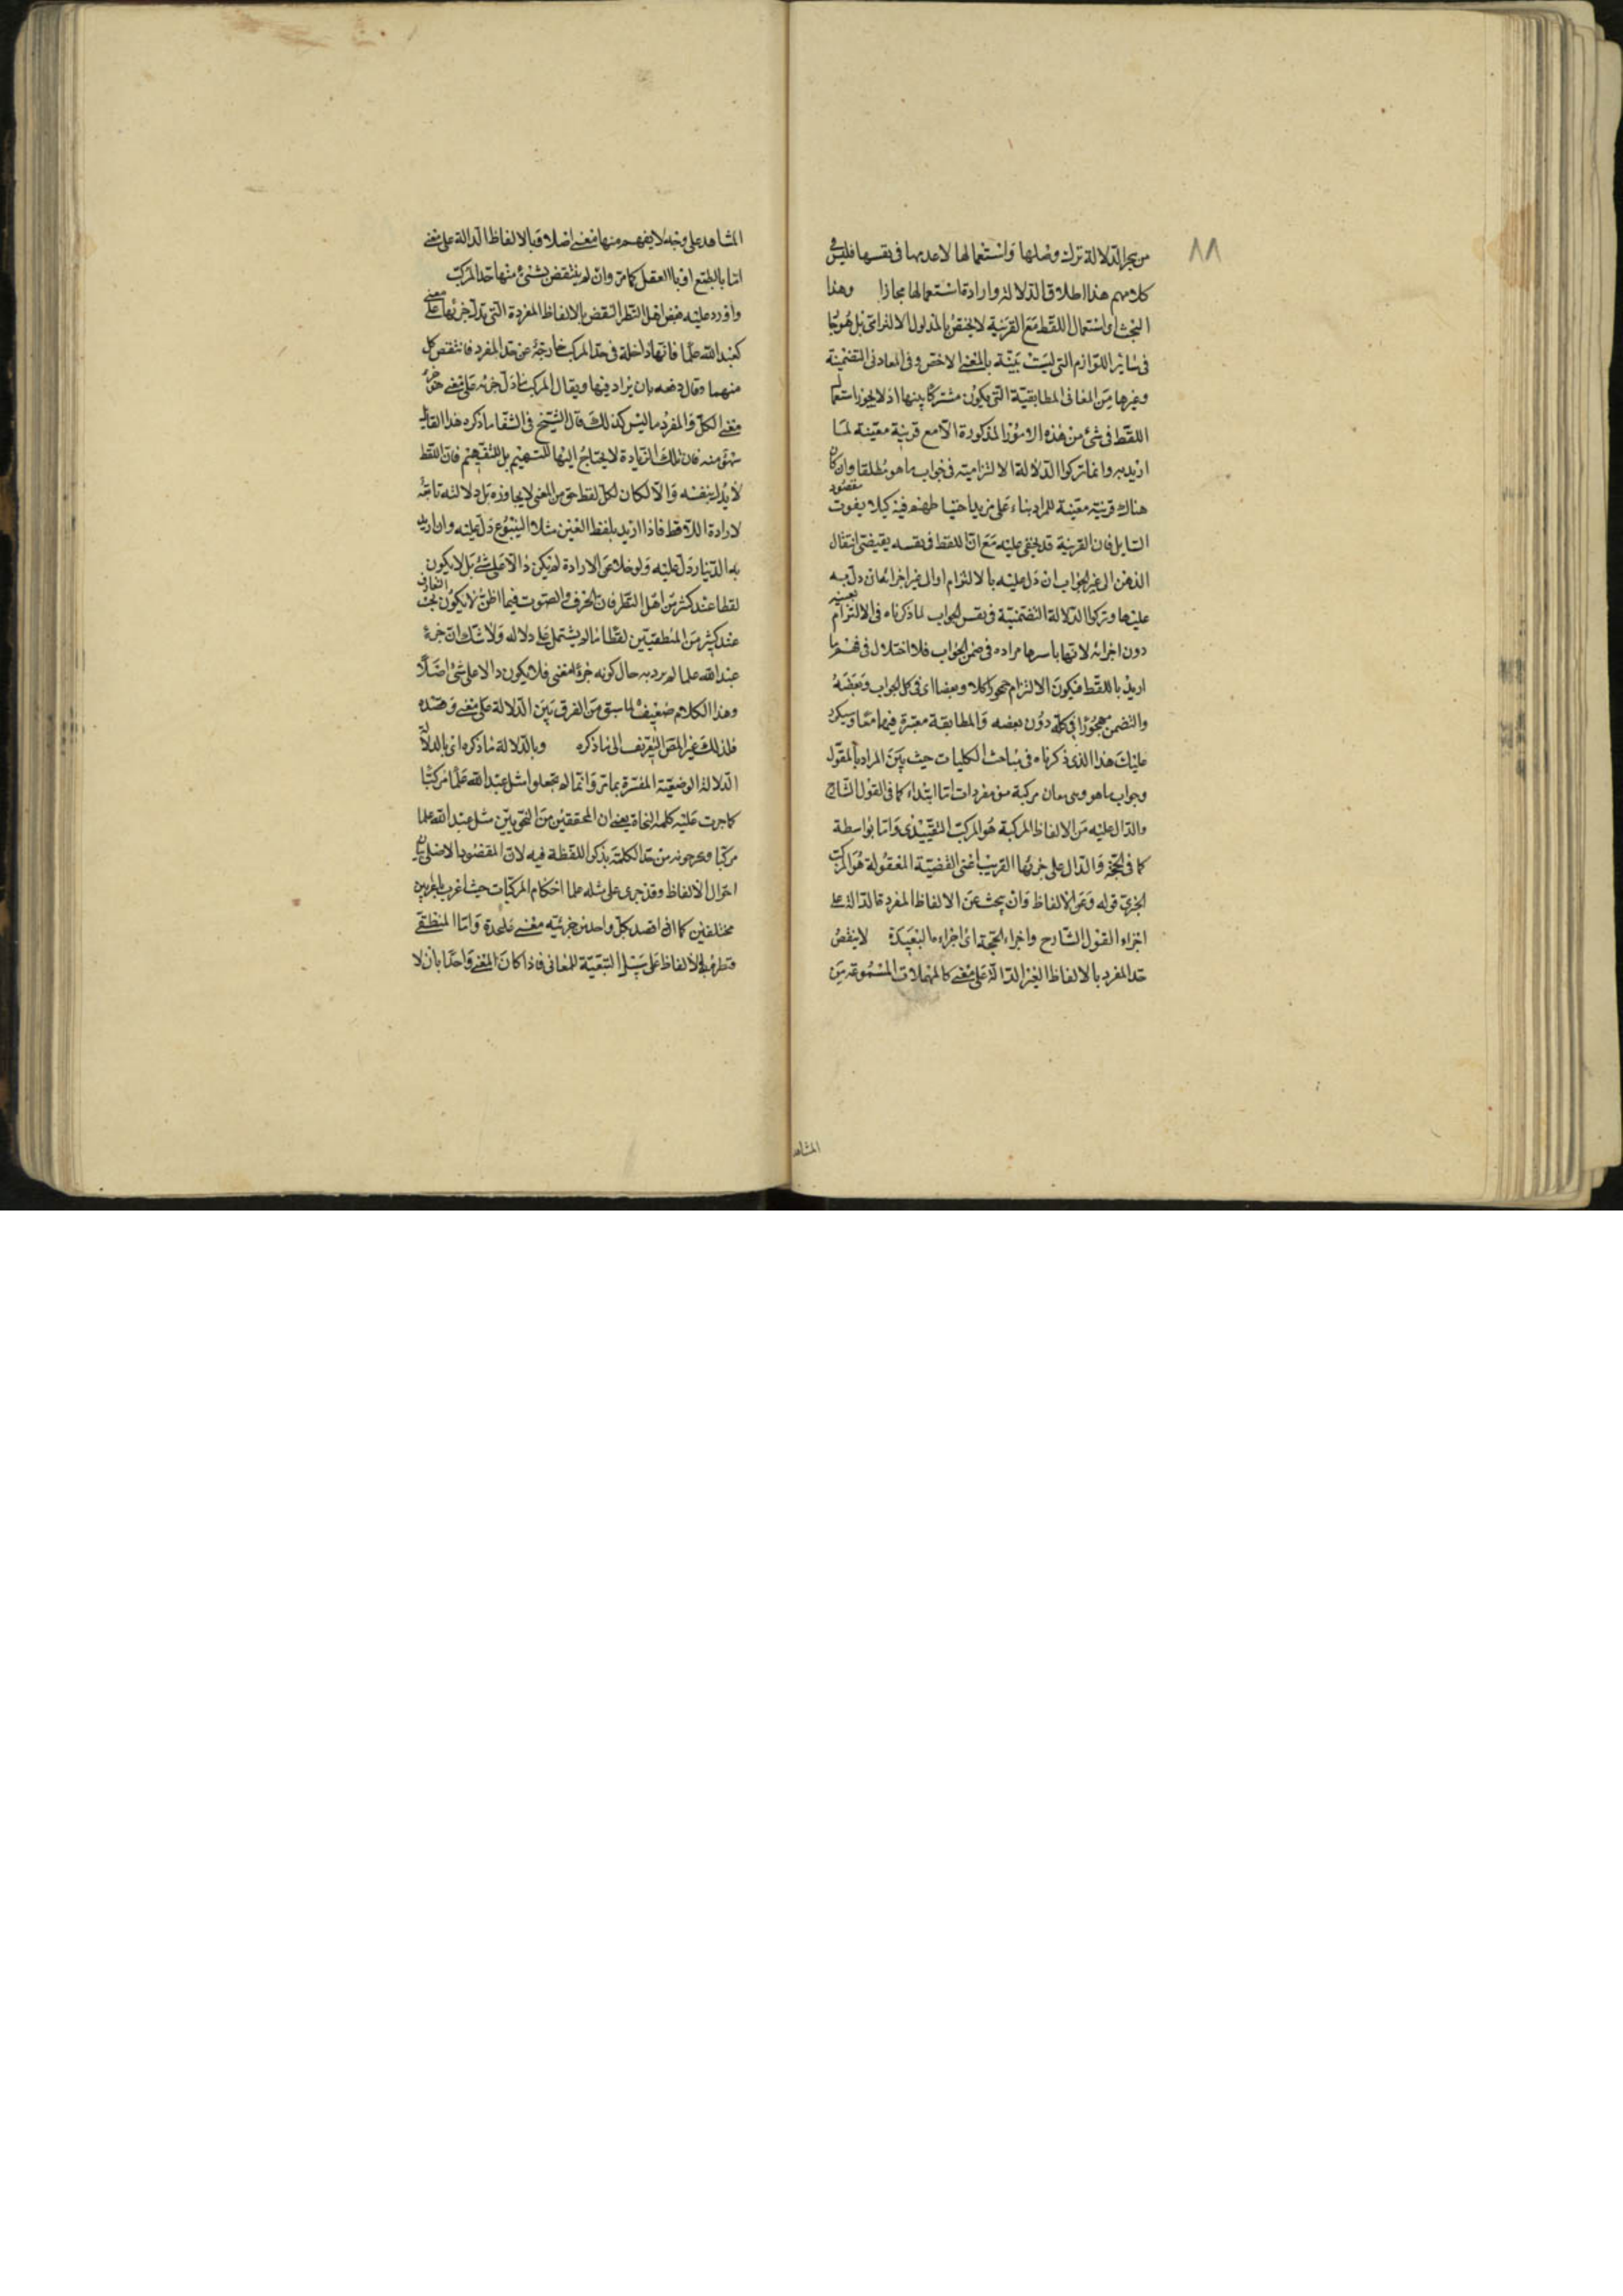 ٨٨
من هجر الدلالة ترك وصلها واستعمالها لا عدمها فى نفسها فليس فى
كلامهم هذا اطلاق الدلالة وارادة استعمالها مجازا وهذا
البحث اى استعمال اللفظ مع القرينة لا يختص بالمدلول الالتزامى بل هو جا
فى سائر اللوازم التى ليست بينة بالمعنى الاخص وفى المعانى التضمنية
وغيرها من المعانى المطابقية التى يكون مشتركا بينها اذ لا يجوز استعما
اللفظ فى شئ من هذه الامور المذكورة الا مع قرينة معينة لما
اريد به وانما تركوا الدلالة الالتزامية فى جواب ما هو مطلقا وان كان
هناك قرينة معينة للمراد بناء على مزيد احتياطهم فيه كيلا يفوت مقصود
السايل فان القرينة قد يخفى عليه مع ان اللفظ فى نفسه يقتضى انتقال
الذهن الى غير الجواب ان دل عليه بالالتزام او الى غير اجزائه ان دل به
عليها وتركوا الدلالة التضمنية فى نفس الجواب لما ذكرناه فى الالتزام بعينه
دون اجزائه لانها باسرها مرادة فى ضمن الجواب فلا اختلال فى فهم ما
اريد باللفظ فيكون الالتزام مهجورا كلا وبعضا اى فى كل الجواب وبعضه
والتضمن مهجورا فى كله دون بعضه والمطابقة معتبرة فيهما معا وسيكرر
عليك هذا الذى ذكرناه فى مباحث الكليات حيث يبين المراد بالمقول
وجواب ما هو وهى معان مركبة من مفردات اما ابتداء كما فى القول الشارح
والدال عليه من الالفاظ المركبة هو المركب التقييدى واما بواسطة
كما فى الحجة والدال على جزئها القريب اعنى القضية المعقولة هو المركب
الخبرى قوله وعن الالفاظ وان يبحث عن الالفاظ المفردة الدالة على
اجزاء القول الشارح واجزاء الحجة اى اجزاءها البعيدة لا ينقض
حد المفرد بالالفاظ الغير الدالة على معنى كالمهملات المسموعة من
المشاهد
المشاهد على وجه لا يفهم منها معنى اصلا وبالالفاظ الدالة على معنى
اما بالطبع او بالعقل كما مر وان لم ينتقض بشئ منها حد المركب
واورد عليه بعض اهل النظر النقض بالالفاظ المفردة التى تدل جزؤها على معنى
كعبد الله علما فانها داخلة فى حد المركب خارجة عن حد المفرد فانتقض كل
منهما وقال دفعه بان يزاد فيها ويقال المركب ما دل جزئه على معنى هو جزء
معنى الكل والمفرد ما ليس كذلك قال الشيخ فى الشفا ما ذكره هذا القايل
سهو منه فان تلك الزيادة لا يحتاج اليها للتتميم بل للتفهيم فان اللفظ
لا يدل بنفسه والا لكان لكل لفظ حق من المعنى لا يجاوزه بل دلالته تابعة
لارادة اللافظ فاذا اريد بلفظ العين مثلا الينبوع دل عليه وان اريد
به الدينار دل عليه ولو خلا عن الارادة لم يكن دالا على شئ بل لا يكون
لفظا عند كثير من اهل النظر فان الحرف والصوت فيما اظن لا يكون بحسب التعارف
عند كثير من المنطقيين لفظا ما لم يشتمل على دلالة ولا شك ان جزء
عبد الله علما لم يرد به حال كونه جزءا معنى فلا يكون دالا على شئ اصلا
وهذا الكلام ضعيف لما سبق من الفرق بين الدلالة على معنى وقصده
فلذلك غير المص التعريف الى ما ذكره وبالدلالة ما ذكره اى بالدلالة
الدلالة الوضعية المفسرة بما مر وانما لم يجعلوا مثل عبد الله علما مركبا
كما جرت عليه كلمة النحاة يعنى ان المحققين من النحويين مثل عبد الله علما
مركبا ويخرجونه من حد الكلمة بذكر اللفظة فيه لان المقصود الاصلى بيان
احوال الالفاظ وقد جرى على مثله علما احكام المركبات حيث اعرب باعرابين
مختلفين كما اذا قصد بكل واحد من جزئيه معنى على حدة واما المنطقى
فنظره فى الالفاظ على سبيل التبعية للمعانى فاذا كان المعنى واحدا بان لا